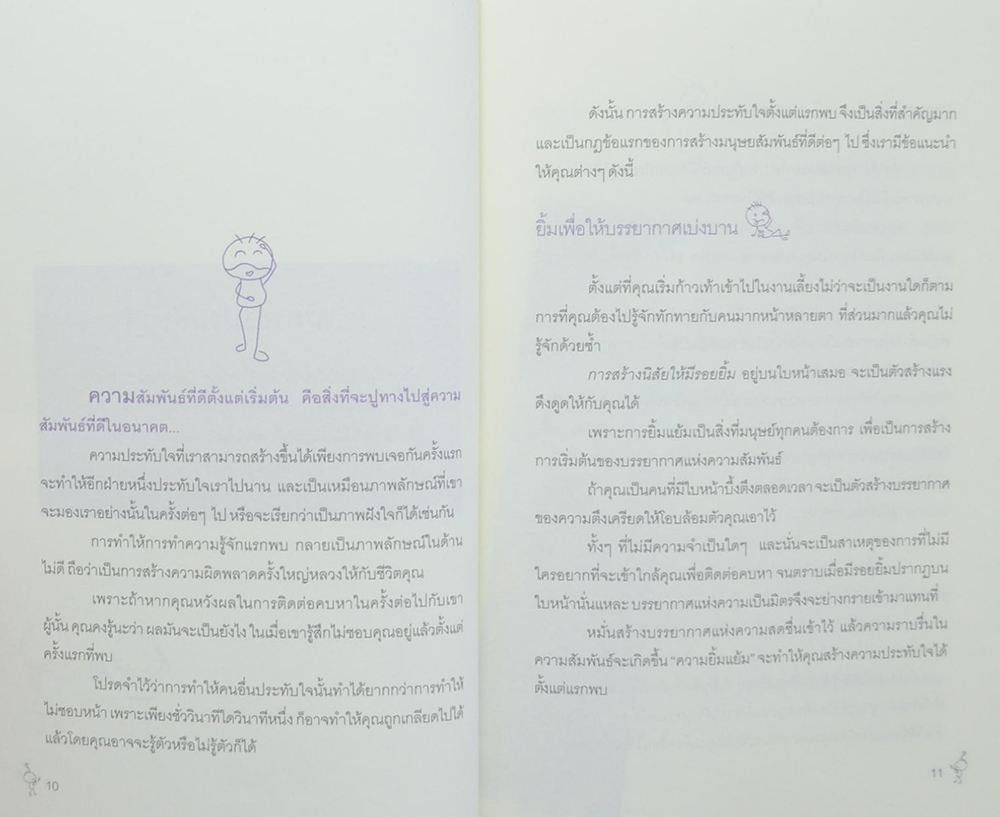 ความสัมพันธ์ที่ดีตั้งแต่เริ่มต้น คือสิ่งที่จะปูทางไปสู่ความ
สัมพันธ์ที่ดีในอนาคต...
ความประทับใจที่เราสามารถสร้างขึ้นได้เพียงการพบเจอกันครั้งแรก
จะทำให้อีกฝ่ายหนึ่งประทับใจเราไปนาน และเป็นเหมือนภาพลักษณ์ที่เขา
จะมองเราอย่างนั้นในครั้งต่อๆ ไป หรือจะเรียกว่าเป็นภาพฝังใจก็ได้เช่นกัน
การทำให้การทำความรู้จักแรกพบ กลายเป็นภาพลักษณ์ในด้าน
ไม่ดี ถือว่าเป็นการสร้างความผิดพลาดครั้งใหญ่หลวงให้กับชีวิตคุณ
เพราะถ้าหากคุณหวังผลในการติดต่อคบหาในครั้งต่อไปกับเขา
ผู้นั้น คุณคงรู้นะว่า ผลมันจะเป็นยังไง ในเมื่อเขารู้สึกไม่ชอบคุณอยู่แล้วตั้งแต่
ครั้งแรกที่พบ
โปรดจำไว้ว่าการทำให้คนอื่นประทับใจนั้นทำได้ยากกว่าการทำให้
ไม่ชอบหน้า เพราะเพียงชั่ววินาทีใดวินาทีหนึ่ง ก็อาจทำให้คุณถูกเกลียดไปได้
แล้วโดยคุณอาจจะรู้ตัวหรือไม่รู้ตัวก็ได้
10
ดังนั้น การสร้างความประทับใจตั้งแต่แรกพบ จึงเป็นสิ่งที่สำคัญมาก
และเป็นกฎข้อแรกของการสร้างมนุษยสัมพันธ์ที่ดีต่อๆ ไป ซึ่งเรามีข้อแนะนำ
ให้คุณต่างๆ ดังนี้
ยิ้มเพื่อให้บรรยากาศเบ่งบาน
ตั้งแต่ที่คุณเริ่มก้าวเท้าเข้าไปในงานเลี้ยงไม่ว่าจะเป็นงานใดก็ตาม
การที่คุณต้องไปรู้จักทักทายกับคนมากหน้าหลายตา ที่ส่วนมากแล้วคุณไม่
รู้จักด้วยซ้ำ
การสร้างนิสัยให้มีรอยยิ้ม อยู่บนใบหน้าเสมอ จะเป็นตัวสร้างแรง
ดึงดูดให้กับคุณได้
เพราะการยิ้มแย้มเป็นสิ่งที่มนุษย์ทุกคนต้องการ เพื่อเป็นการสร้าง
การเริ่มต้นของบรรยากาศแห่งความสัมพันธ์
ถ้าคุณเป็นคนที่มีใบหน้าบึ้งตึงตลอดเวลา จะเป็นตัวสร้างบรรยากาศ
ของความตึงเครียดให้โอบล้อมตัวคุณเอาไว้
ทั้งๆ ที่ไม่มีความจำเป็นใดๆ และนั่นจะเป็นสาเหตุของการที่ไม่มี
ใครอยากที่จะเข้าใกล้คุณเพื่อติดต่อคบหา จนตราบเมื่อมีรอยยิ้มปรากฏบน
ใบหน้านั่นแหละ บรรยากาศแห่งความเป็นมิตรจึงจะย่างกรายเข้ามาแทนที่
หมั่นสร้างบรรยากาศแห่งความสดชื่นเข้าไว้ แล้วความราบรื่นใน
ความสัมพันธ์จะเกิดขึ้น “ความยิ้มแย้ม” จะทำให้คุณสร้างความประทับใจได้
ตั้งแต่แรกพบ
11